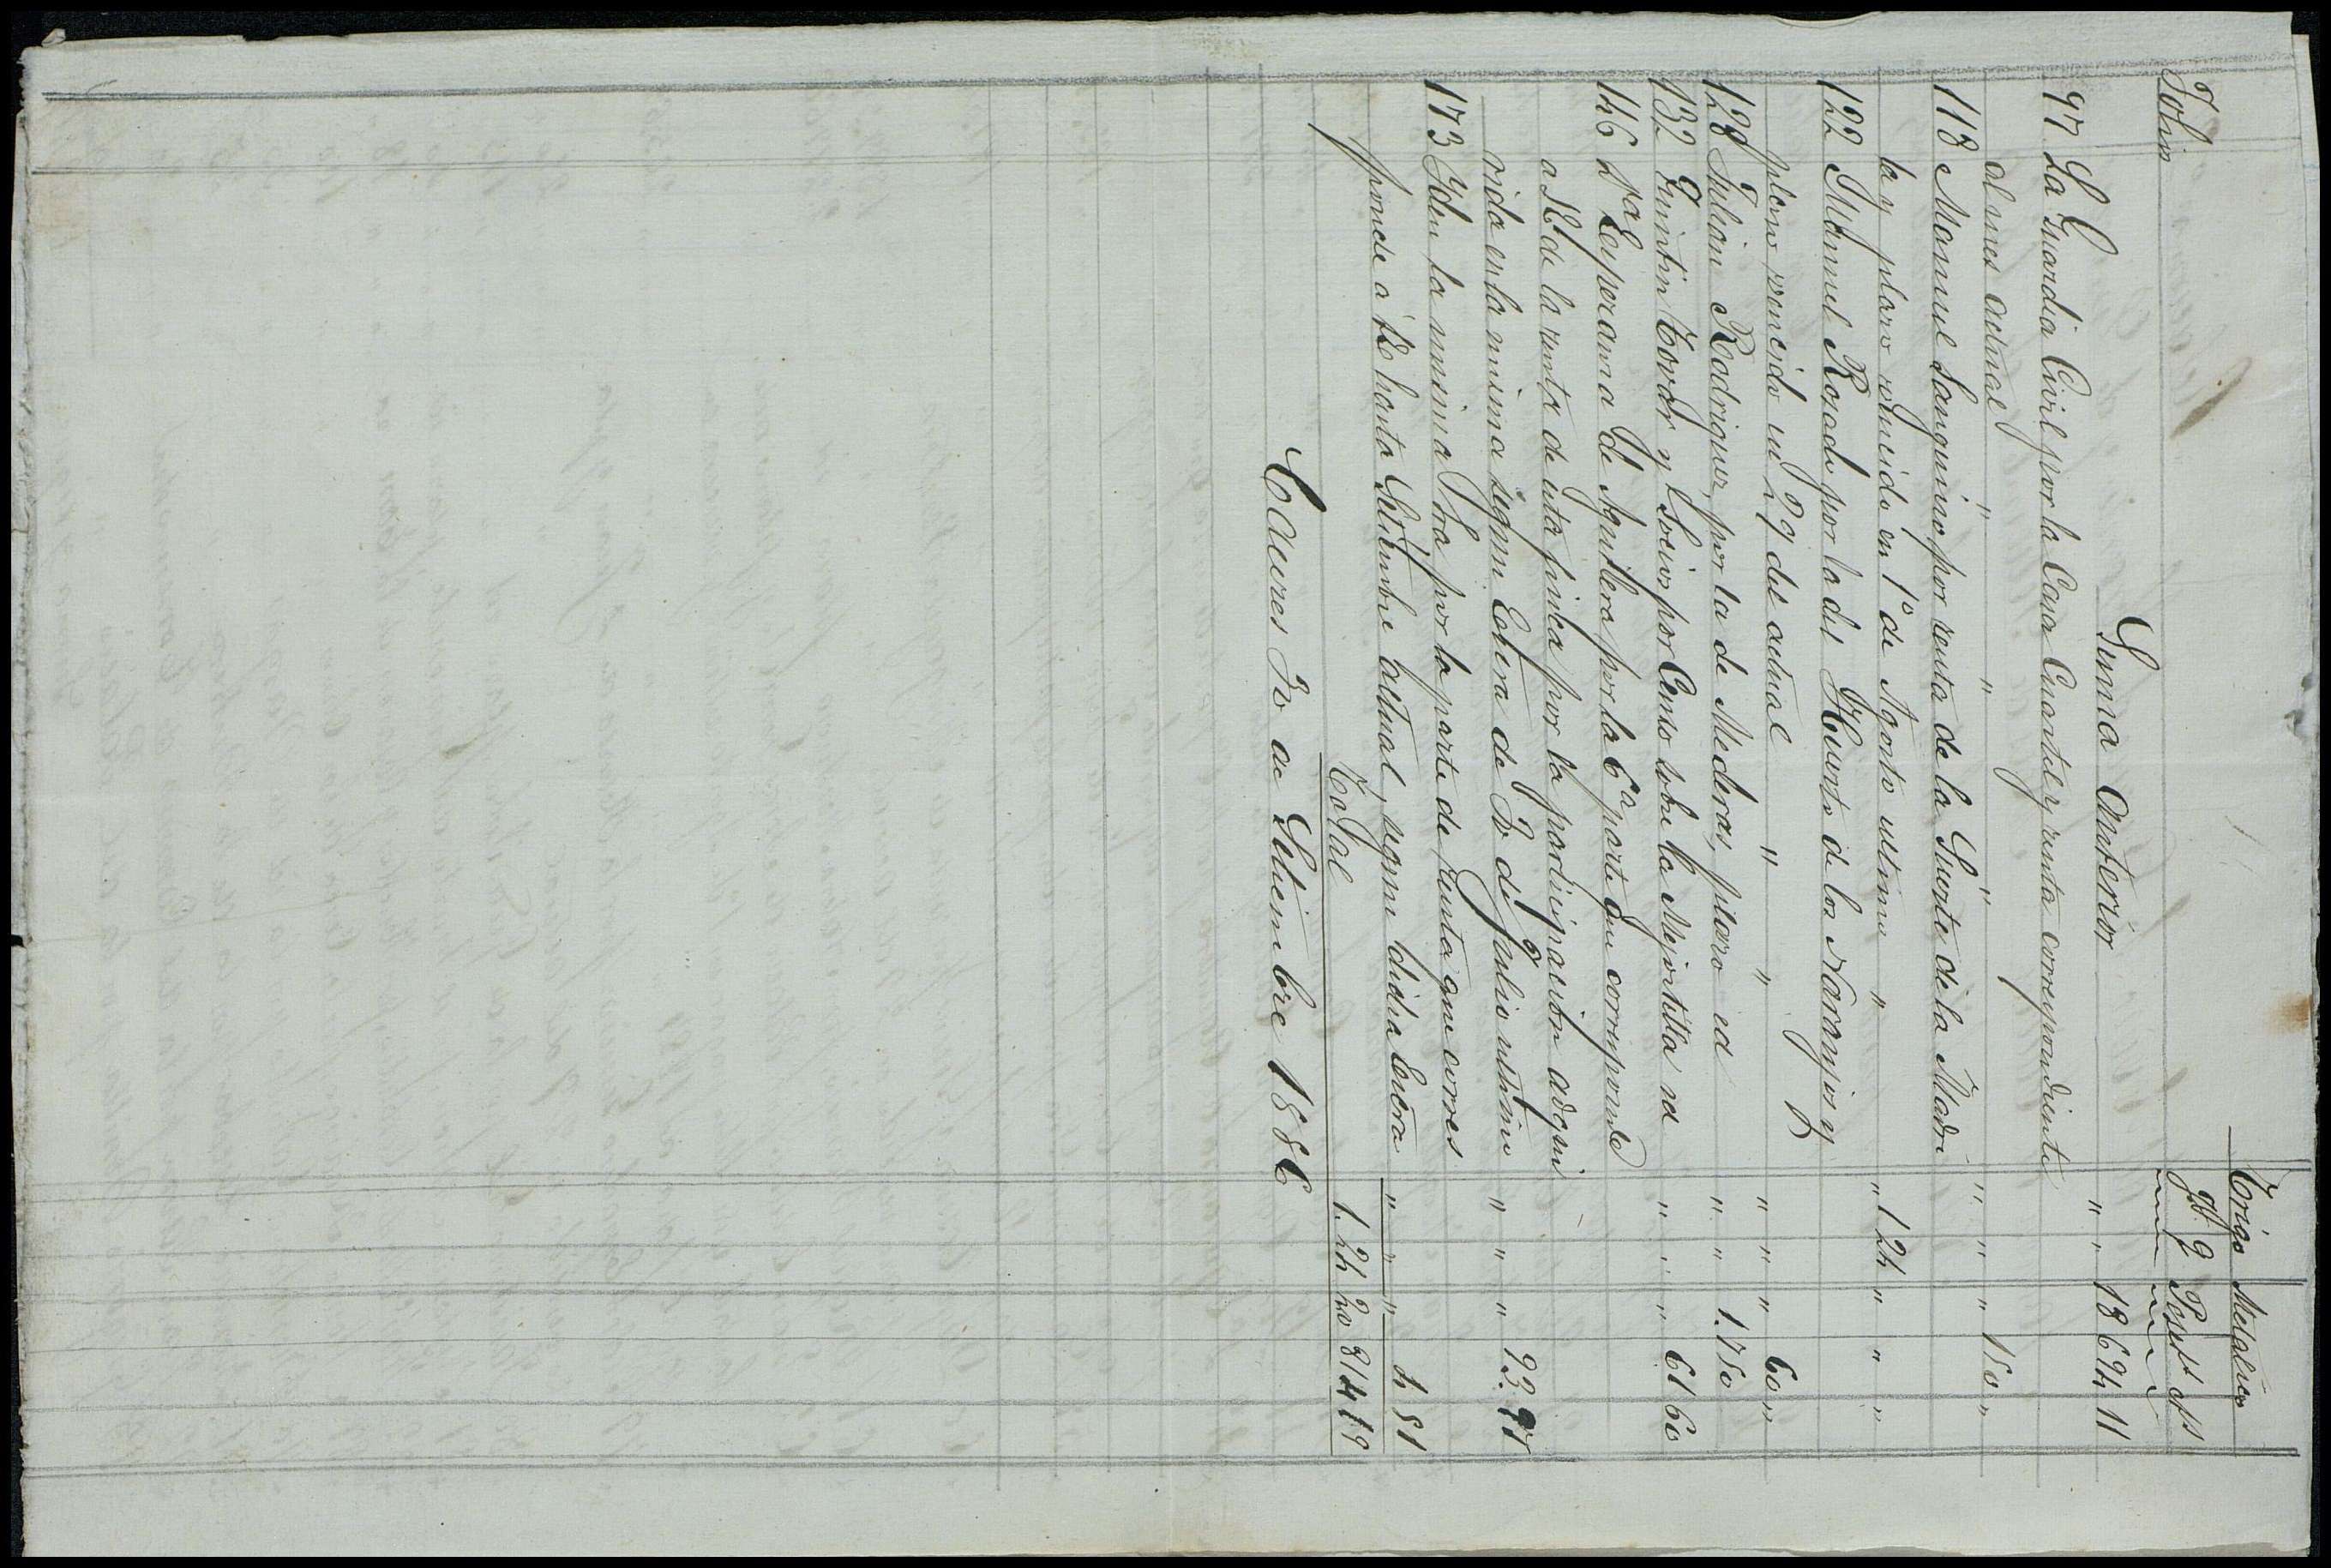 Trigo Metalico
Folio fs. q Peset.s cts
Suma anterior " " 18 694 11
97 La Guardia Civil por la Casa Cuartel y renta correspondiente
al mes actual " " " " " " 150 "
118 Manuel Sanguino por renta de la Suerte de la Madri
la y plazo vencido en 1º de Agosto ultimo " " 1 24 " " "
122 Manuel Rosado por la del Huerto de los Naranjos y
plazo vencido en 29 del actual " " " " " 60 "
128 Julian Rodriguez, por la de Mederas, plazo id " " 1.750
132 Quintin Tovar y Socios por Censo sobre la Mejortilla id " " " 61 60
146 Dª Esperanza de Aguilera por la 6ª parte qu corresponde
a SE de la renta de esta finca por la participacion adqui
rida en la misma segun Escra de 13 de Julio ultimo " " " 93.97
173 Yden la misma Sra por la parte de renta que corres
ponde a SE hasta Setiembre actual, segun dicha Escra " " " 4 51
Total 1.24 20 814 19
Caceres 30 de Setiembre 1886